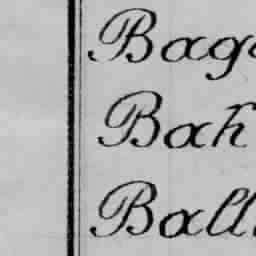 Bag
Bah
Ball